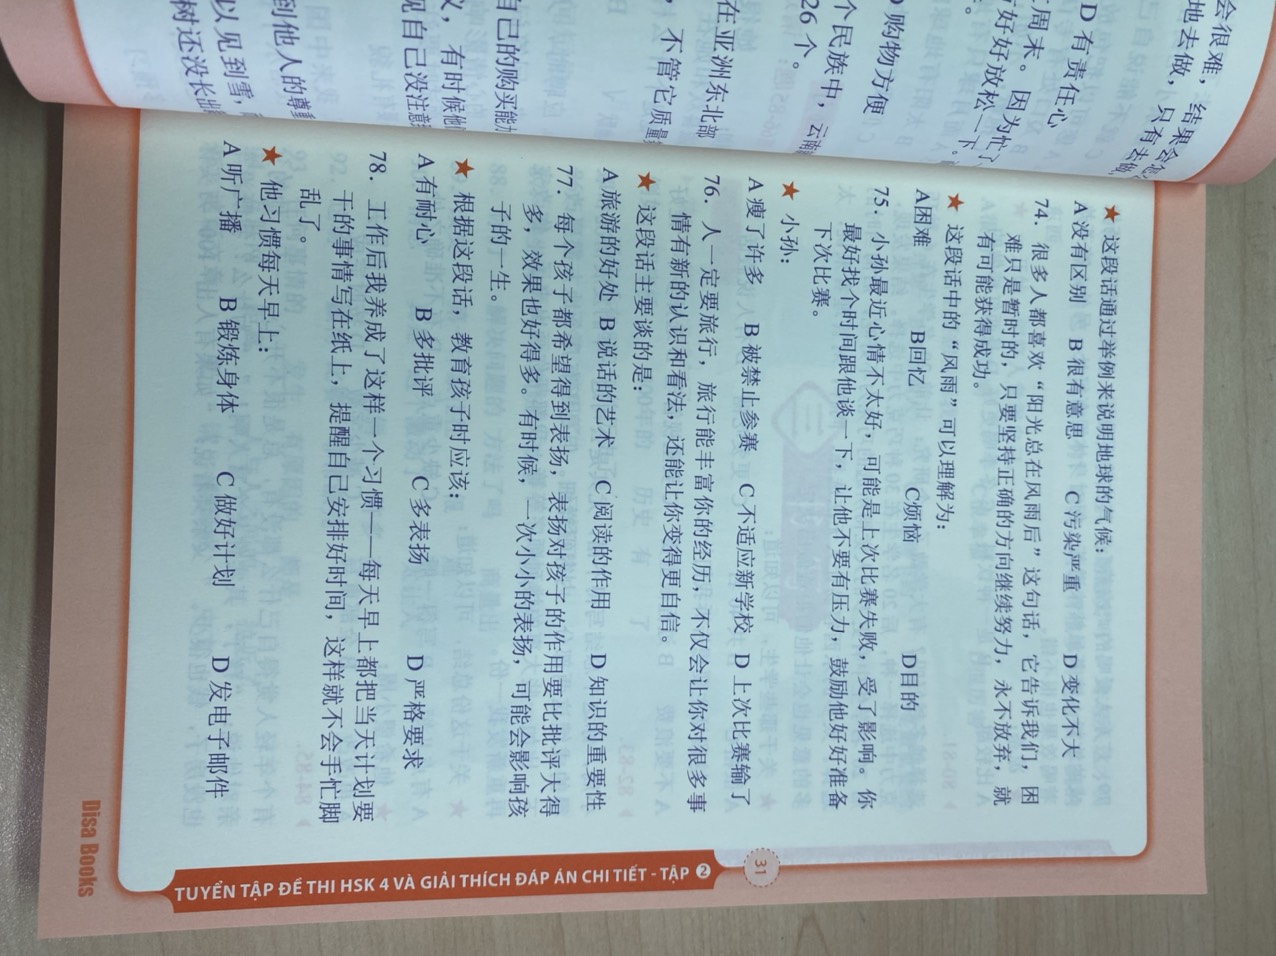 会很难，结果会
地去做，只有去做，
D 有责任心
周末。因为忙了
好好放松一下。
D 购物方便
个民族中，云南
26 个。
在亚洲东北部
，不管它质量
自己的购买能力
义，有时候他
现自己没注意
到他人的尊重
以见到雪，
树还没长出
★ 这段话通过举例来说明地球的气候：
A 没有区别 B 很有意思 C 污染严重 D 变化不大
74. 很多人都喜欢“阳光总在风雨后”这句话，它告诉我们，困
难只是暂时的，只要坚持正确的方向继续努力，永不放弃，就
有可能获得成功。
★ 这段话中的“风雨”可以理解为：
A困难 B回忆 C烦恼 D目的
75. 小孙最近心情不太好，可能是上次比赛失败，受了影响。你
最好找个时间跟他谈一下，让他不要有压力，鼓励他好好准备
下次比赛。
★ 小孙：
A 瘦了许多 B 被禁止参赛 C 不适应新学校 D 上次比赛输了
76. 人一定要旅行，旅行能丰富你的经历，不仅会让你对很多事
情有新的认识和看法，还能让你变得更自信。
★ 这段话主要谈的是：
A 旅游的好处 B 说话的艺术 C 阅读的作用 D 知识的重要性
77. 每个孩子都希望得到表扬，表扬对孩子的作用要比批评大得
多，效果也好得多。有时候，一次小小的表扬，可能会影响孩
子的一生。
★ 根据这段话，教育孩子时应该：
A 有耐心 B 多批评 C 多表扬 D 严格要求
78. 工作后我养成了这样一个习惯——每天早上都把当天计划要
干的事情写在纸上，提醒自己安排好时间，这样就不会手忙脚
乱了。
★ 他习惯每天早上：
A 听广播 B 锻炼身体 C 做好计划 D 发电子邮件
31
TUYỂN TẬP ĐỀ THI HSK 4 VÀ GIẢI THÍCH ĐÁP ÁN CHI TIẾT - TẬP 2
Disa Books